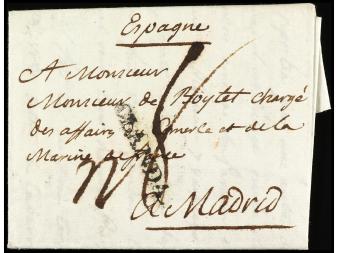 Espagne
A Monsieur
Monsieur de Poytet chargé
des affaires merle et de la
Marine de
a Madrid